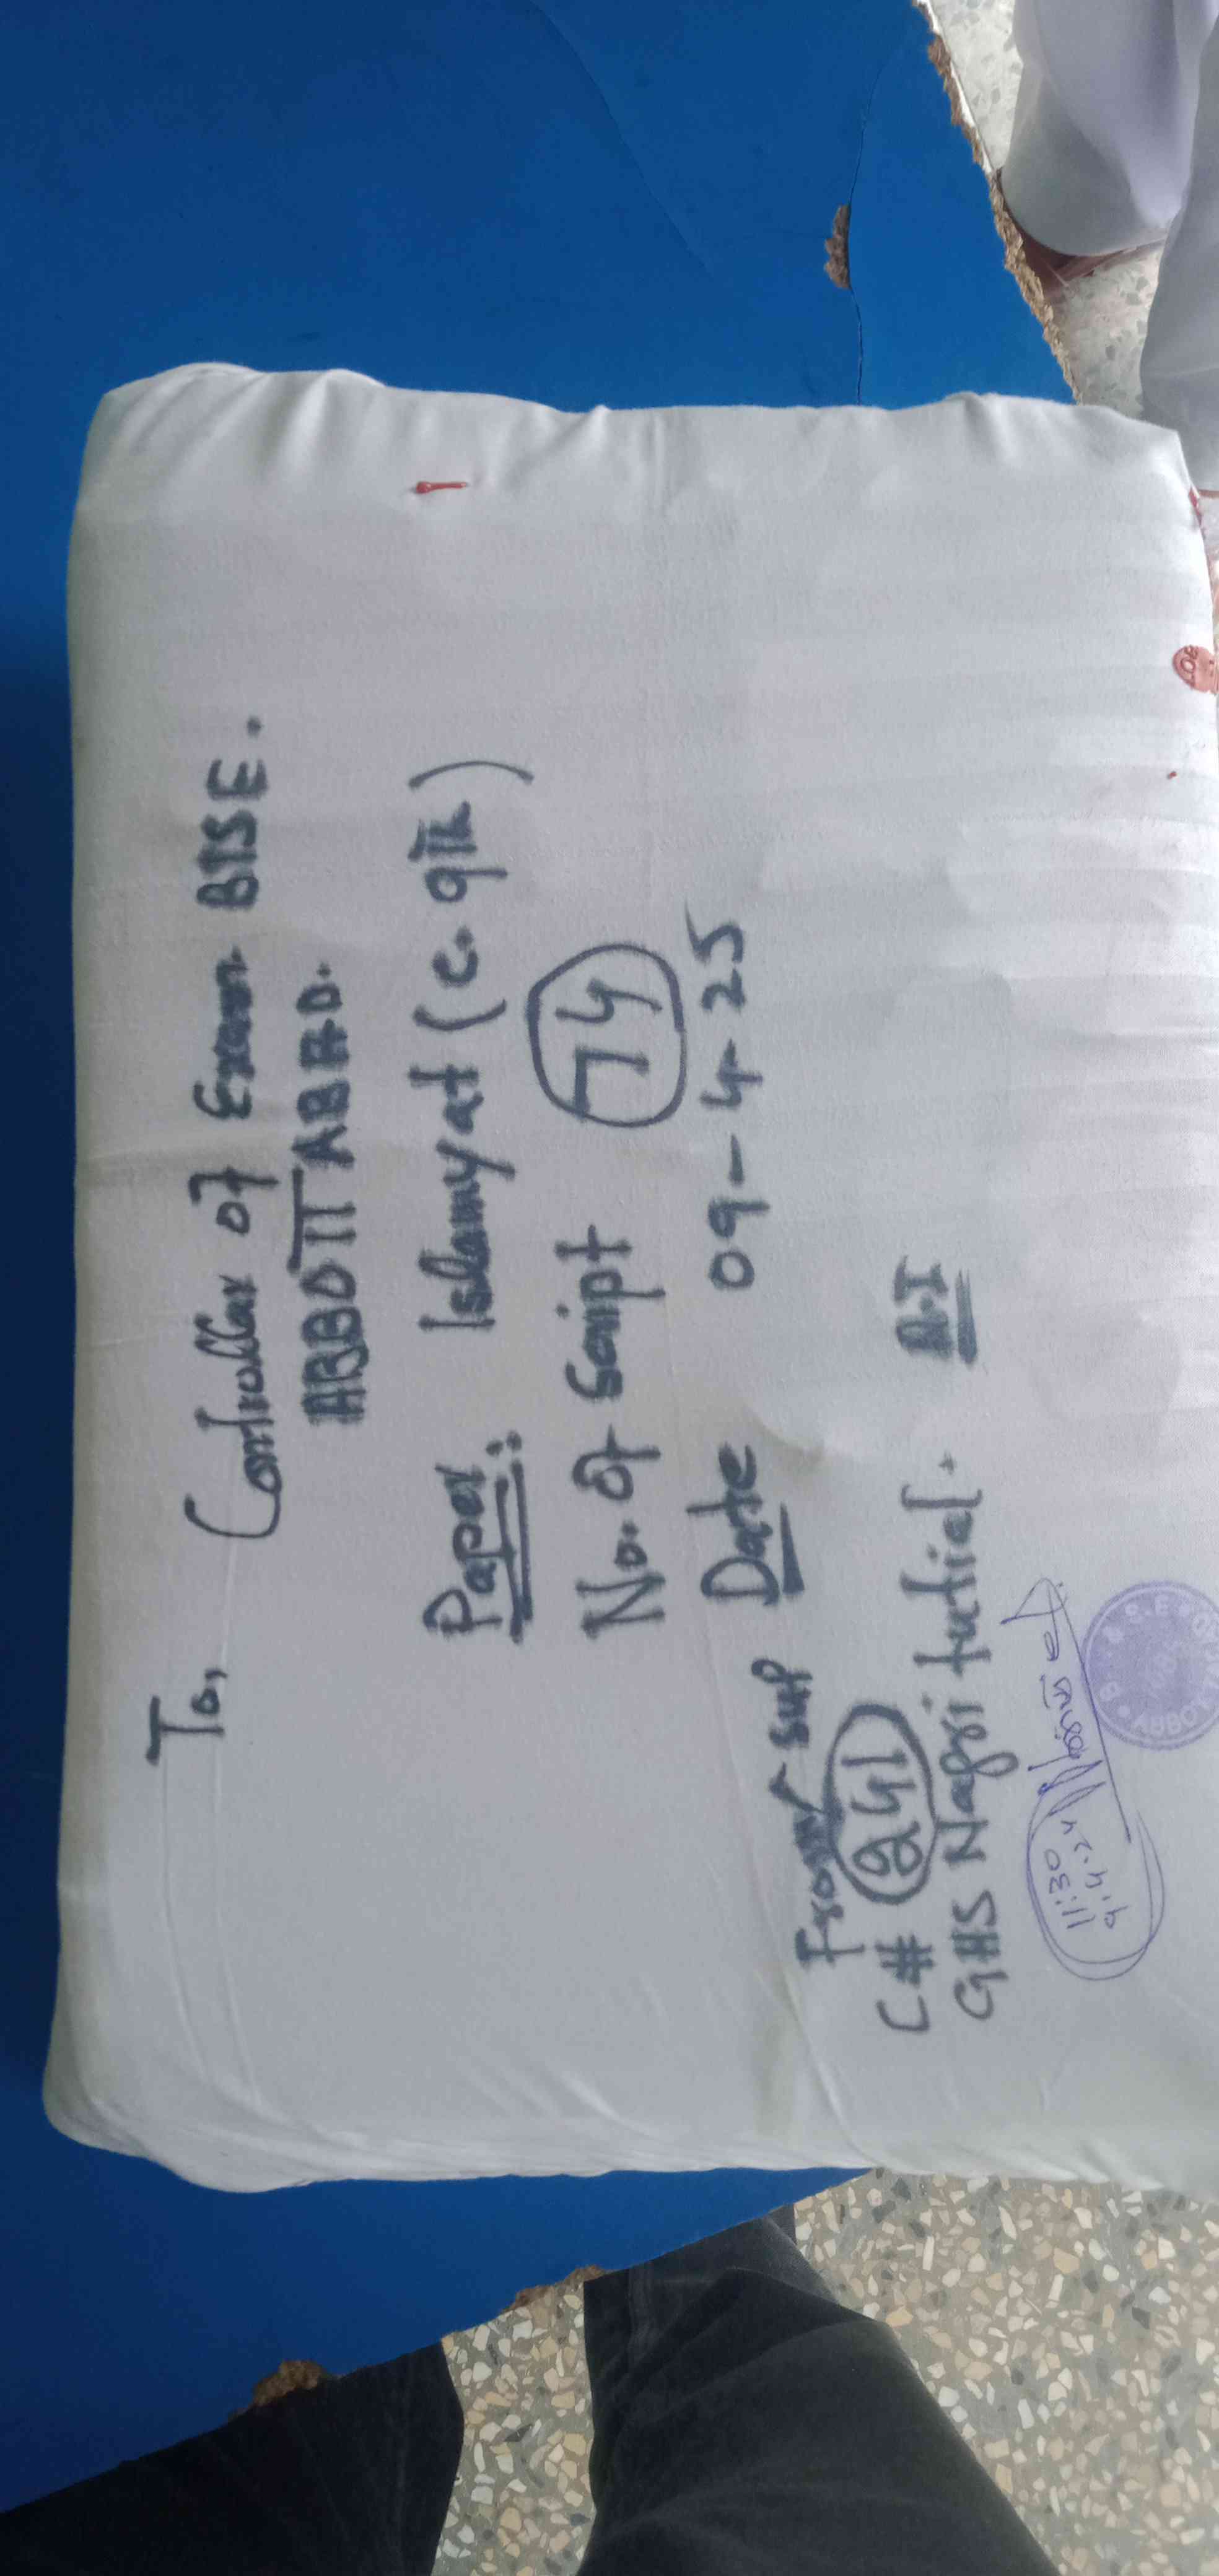 To,
Controller of Exam BISE.
ABBOTTABAD.
Paper: Islamyat (C. 9th)
No. of Script 74
Date 09-4-25
From SUP
C# 241 A-I
GHS Nagri tutial.
11:30